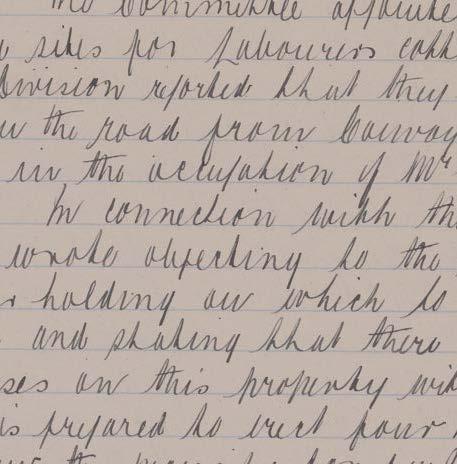 The Committee appointe
sites for Labourers cott
Division reported that they
the road from Conway
in the occupation of Mr
In connection with the
wrote objecting to the
holding on which to
and stating that there
ses on this property wit
is prepared to erect four